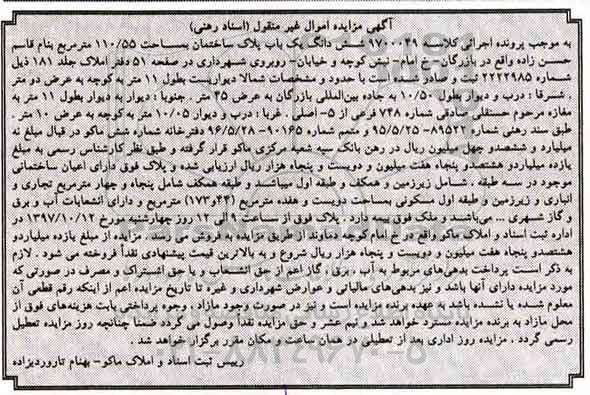 آگهی مزایده اموال غیر منقول (اسناد رهنی)
به موجب پرونده اجرائی کلاسه ۹۷۰۰۰۴۹ شش دانگ یک باب پلاک ساختمان بمساحت ۱۱۰/۵۵ مترمربع بنام قاسم
حسن زاده واقع در بازرگان- خ امام- نبش کوچه و خیابان- روبروی شهرداری در صفحه ۵۱ دفتر املاک جلد ۱۸۱ ذیل
شماره ۲۲۲۲۹۸۵ ثبت و صادر شده است با حدود و مشخصات شمالا دیواریست بطول ۱۱ متر به کوچه به عرض دو متر
. شرقا : درب و دیوار بطول ۱۰/۵۰ به جاده بین‌المللی بازرگان به عرض ۴۵ متر . جنوبا : دیوار به دیوار بطول ۱۱ به
مغازه مرحوم حسنقلی صادقی شماره ۷۴۸ فرعی از ۵- اصلی . غربا : درب و دیوار ۱۰/۰۵ متر به کوچه به عرض ۱۰ متر .
طبق سند رهنی شماره ۸۹۵۲۲- ۹۵/۵/۲۵ و متمم شماره ۹۰۱۶۵- ۹۶/۵/۲۸ دفترخانه شماره شش ماکو در قبال مبلغ نه
میلیارد و ششصدو چهل میلیون ریال در رهن بانک سپه شعبه مرکزی ماکو قرار گرفته و طبق نظر کارشناس رسمی به مبلغ
یازده میلیاردو هشتصدو پنجاه هفت میلیون و دویست و پنجاه هزار ریال ارزیابی شده و پلاک فوق دارای اعیان ساختمانی
موجود در سه طبقه . شامل زیرزمین و همکف و طبقه اول میباشد و طبقه همکف شامل پنجاه و چهار مترمربع تجاری و
انباری و زیرزمین و طبقه اول مسکونی بمساحت دویست و هفده مترمربع (۴۴+۱۷۳) مترمربع و دارای انشعابات آب و برق
و گاز شهری ... می‌باشد و ملک فوق بیمه دارد . پلاک فوق از ساعت ۹ الی ۱۲ روز چهارشنبه مورخ ۱۳۹۷/۱۰/۱۲ در
اداره ثبت اسناد و املاک ماکو واقع در خ امام کوچه دماوند از طریق مزایده به فروش می رسد . مزایده از مبلغ یازده میلیاردو
هشتصدو پنجاه هفت میلیون و دویست و پنجاه هزار ریال شروع و به بالاترین قیمت پیشنهادی نقداً فروخته می شود . لازم
به ذکر است پرداخت بدهی‌های مربوط به آب . برق. گاز اعم از حق انشعاب و یا حق اشتراک و مصرف در صورتی که
مورد مزایده دارای آنها باشد و نیز بدهی‌های مالیاتی و عوارض شهرداری و غیره تا تاریخ مزایده اعم از اینکه رقم قطعی آن
معلوم شده یا نشده باشد به عهده برنده مزایده است و نیز در صورت وجود مازاد . وجوه پرداختی بابت هزینه‌های فوق از
محل مازاد به برنده مزایده مسترد خواهد شد و نیم عشر و حق مزایده نقدا وصول می گردد ضمنا چنانچه روز مزایده تعطیل
رسمی گردد . مزایده روز اداری بعد از تعطیلی در همان ساعت و مکان مقرر برگزار خواهد شد .
رییس ثبت اسناد و املاک ماکو- بهنام تاروردیزاده